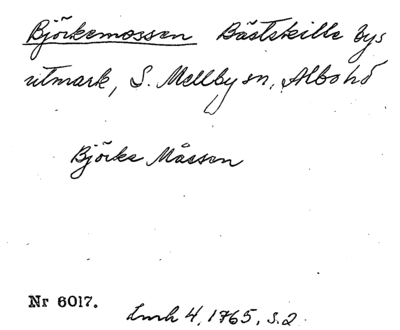 Björkemossen Bästekille bys
utmark, S. Mellby sn, Albo hd
Björke Måssen
Nr 6017.
Lmh 4, 1765, s. 2.